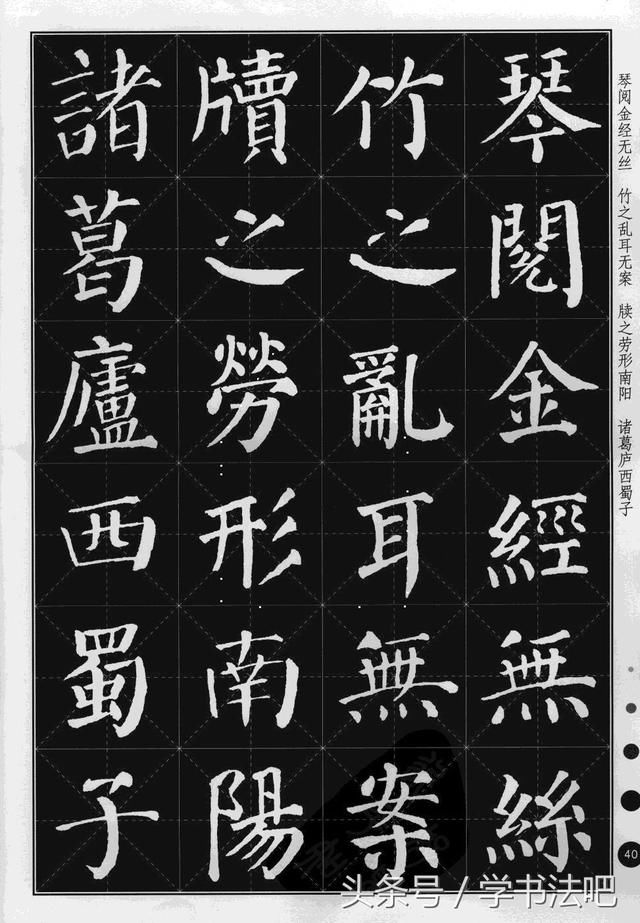 琴閱金經無絲
竹之亂耳無案
牘之勞形南陽
諸葛廬西蜀子
琴阅金经无丝 竹之乱耳无案 牍之劳形南阳 诸葛庐西蜀子
40
头条号／学书法吧